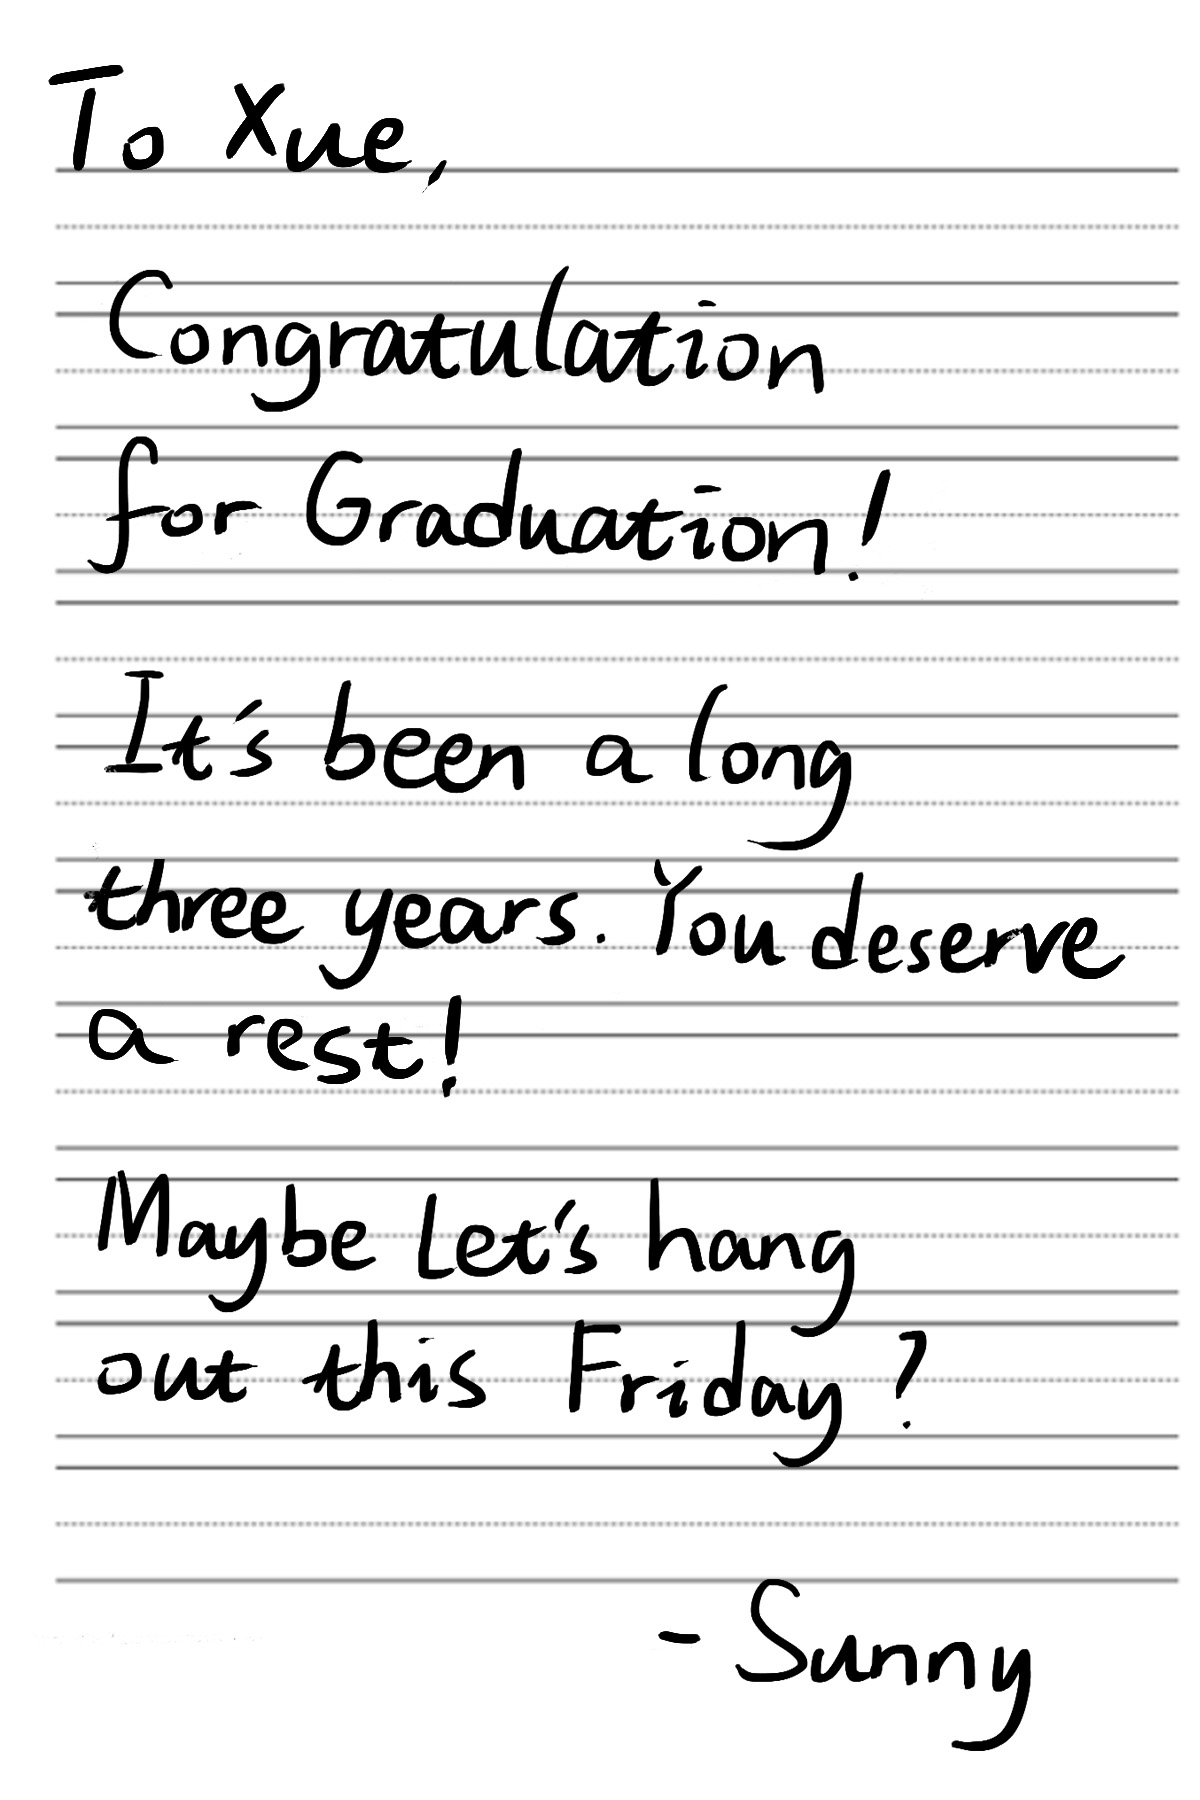 To Xue,
Congratulation
for Graduation!
It's been a long
three years. You deserve
a rest!
Maybe Let's hang
out this Friday?
- Sunny